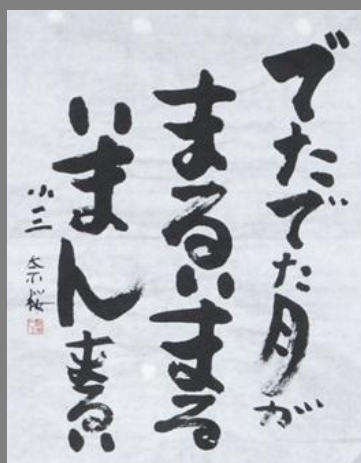 でたでた月が
まるいまる
いまんまるい
小三 奈桜